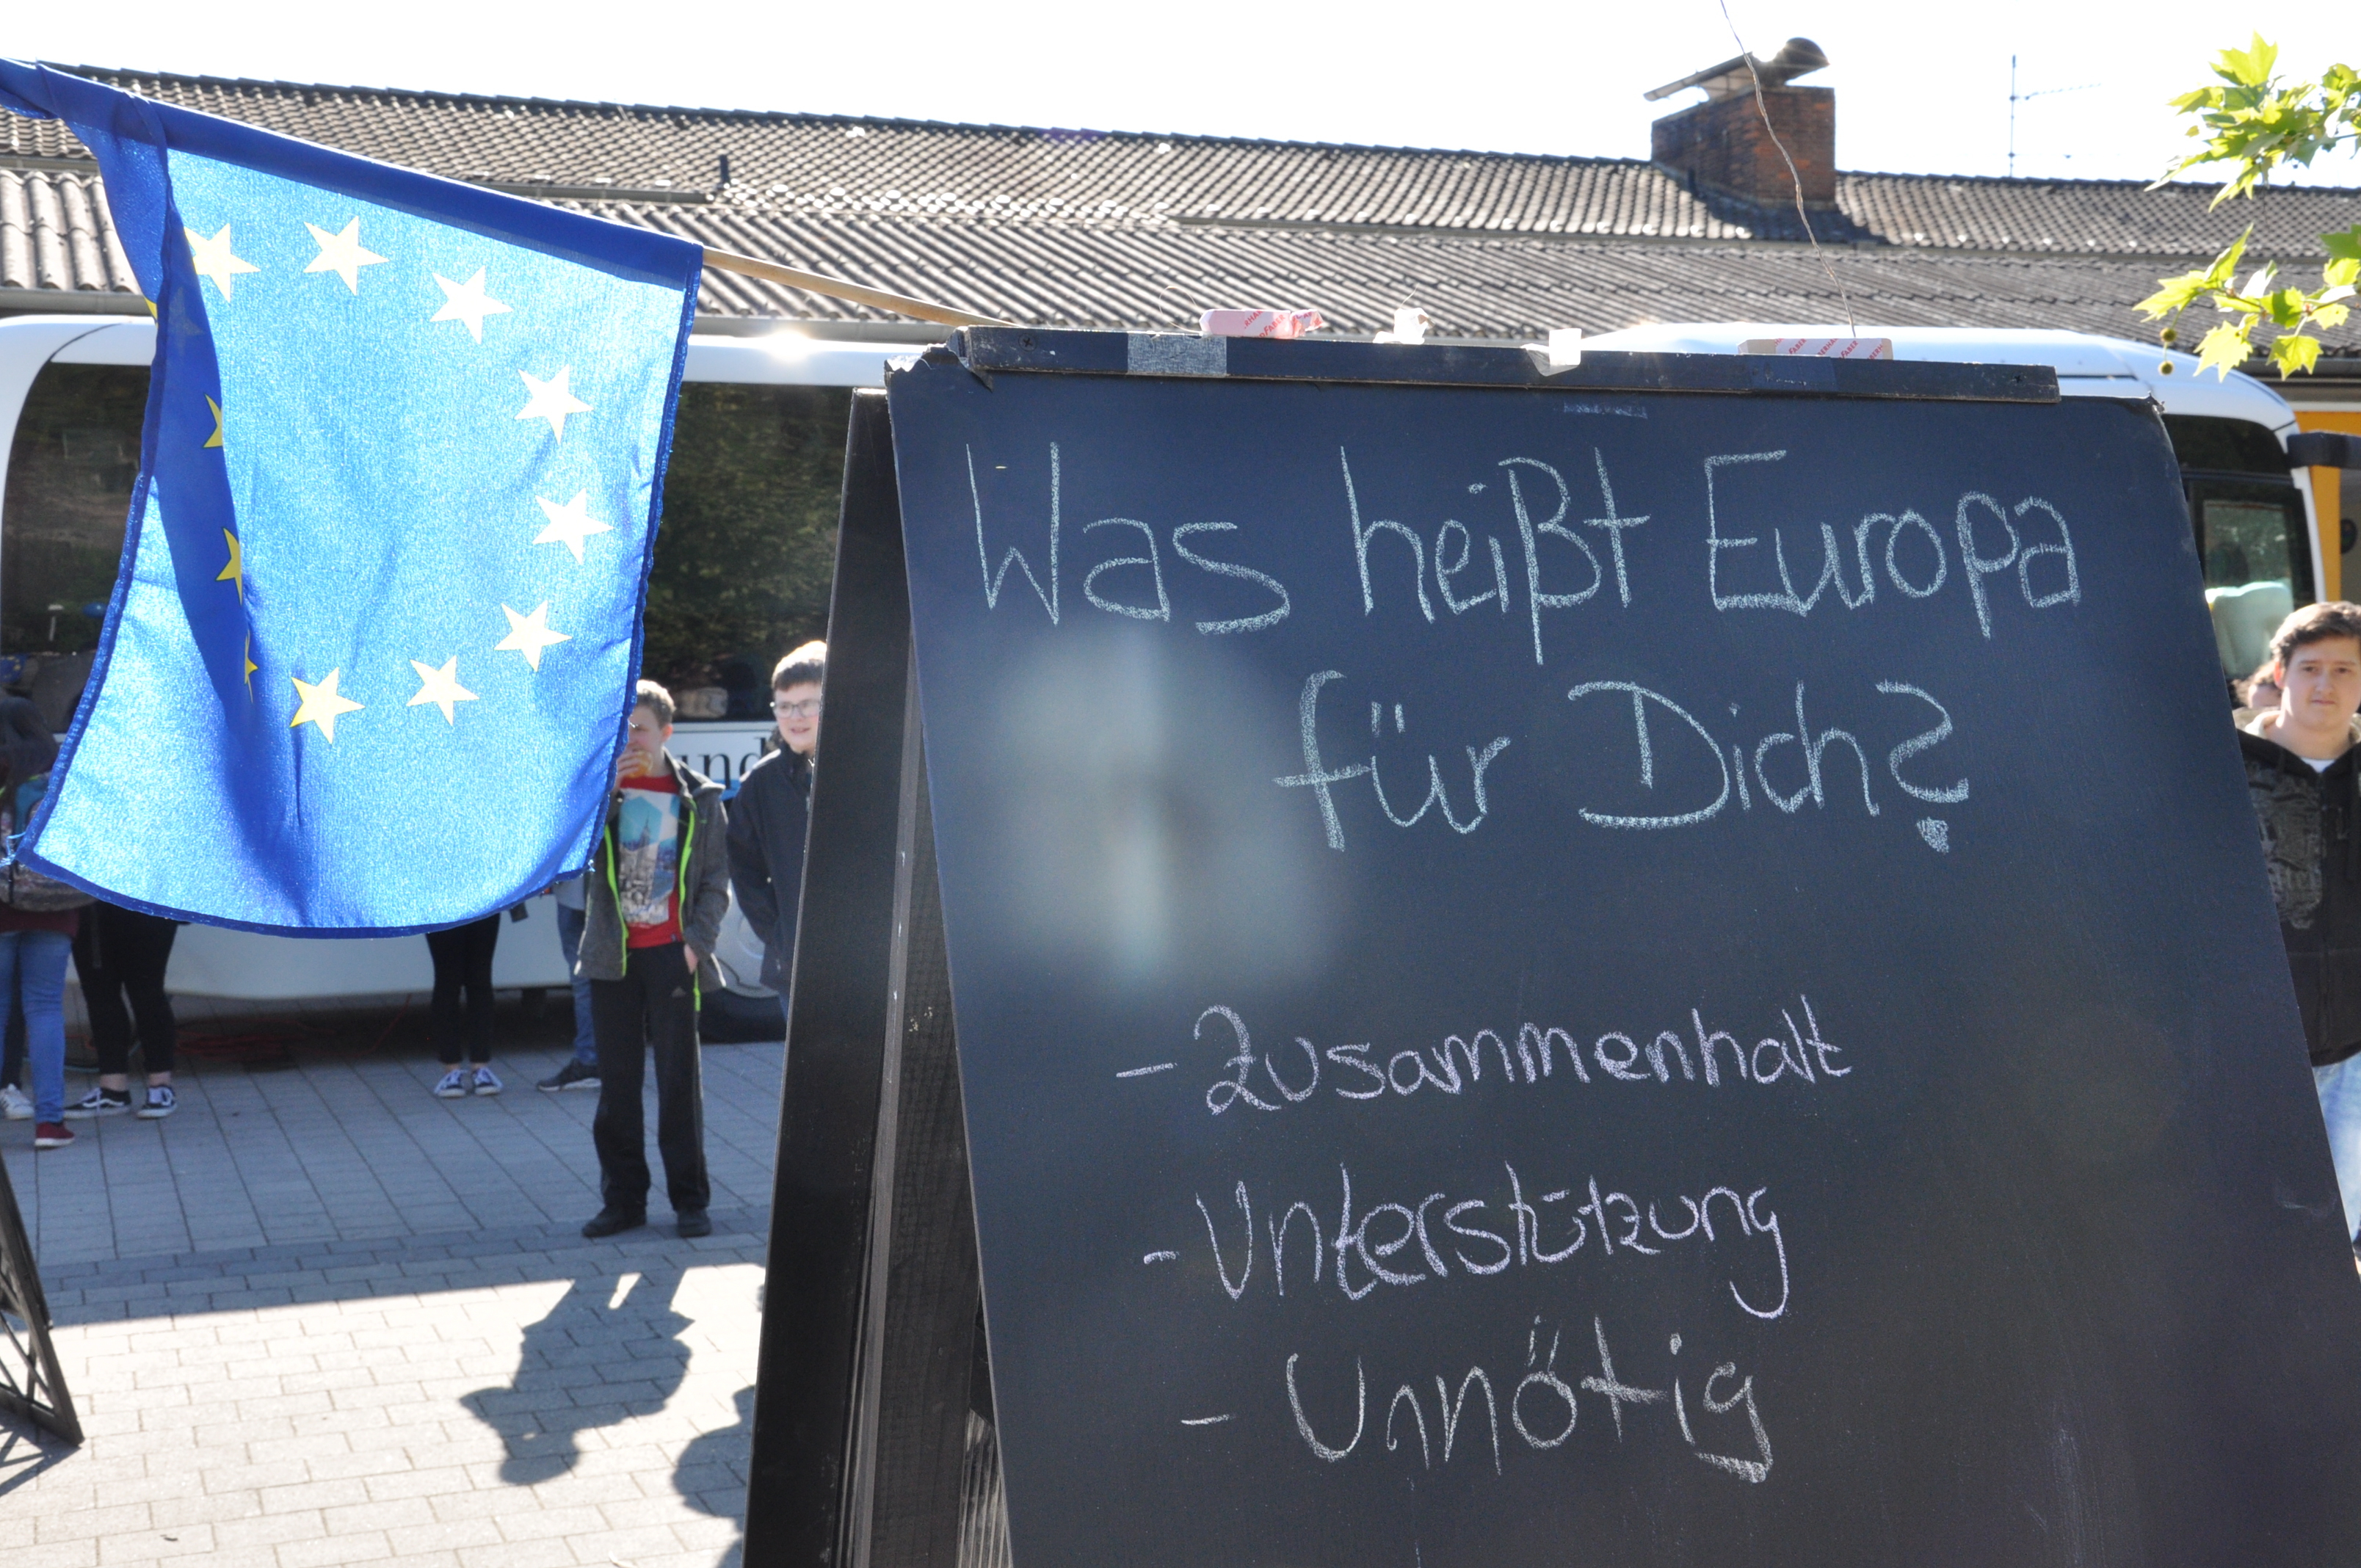 Was heißt Europa
für Dich?
- Zusammenhalt
- Unterstützung
- Unnötig
und